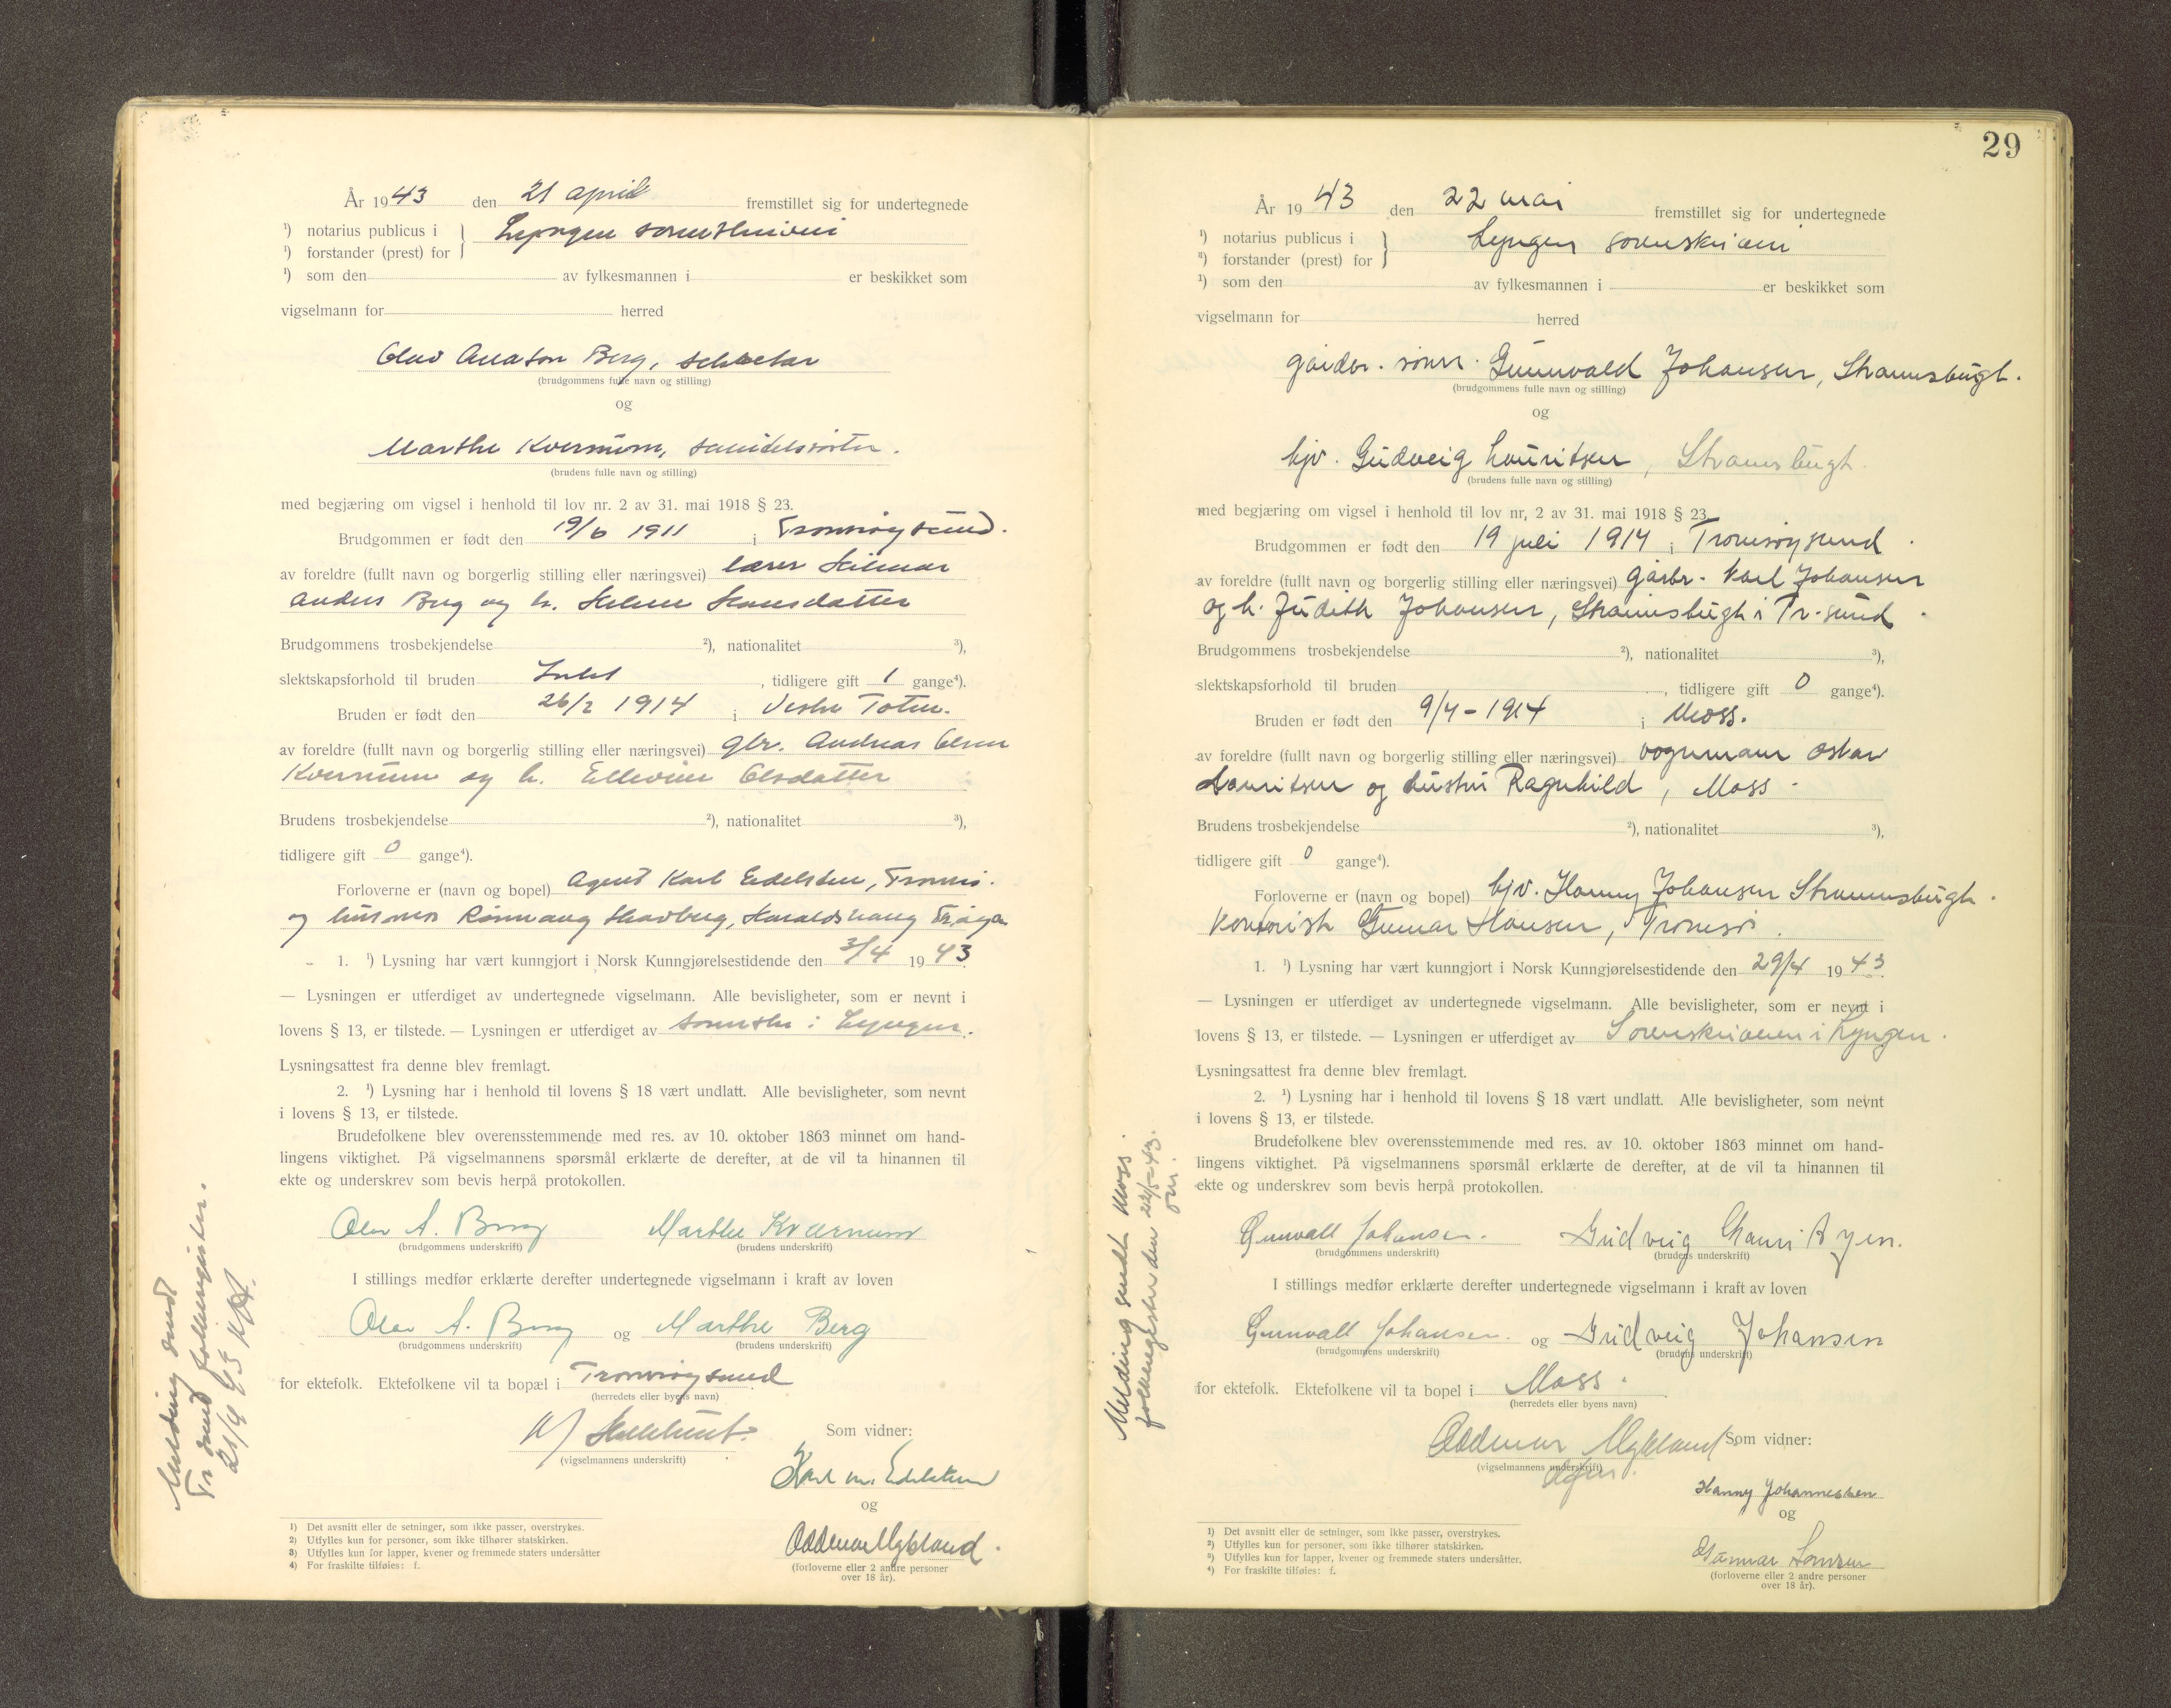 År 1943 den 21 april fremstillet sig for undertegnede
¹) notarius publicus i } Lyngen sorenskriveri
¹) forstander (prest) for
¹) som den av fylkesmannen i er beskikket som
vigselmann for herred
Olav Berg, sekretær
(brudgommens fulle navn og stilling)
og
Marthe Kvernum,
(brudens fulle navn og stilling)
med begjæring om vigsel i henhold til lov nr. 2 av 31. mai 1918 § 23.
Brudgommen er født den 19/6 1911 i Tromsøysund.
av foreldre (fullt navn og borgerlig stilling eller næringsvei) lærer Hilmar
Anders Berg og h. Helene Hansdatter
Brudgommens trosbekjendelse ²), nationalitet ³),
slektskapsforhold til bruden Intet, tidligere gift 1 gange⁴).
Bruden er født den 26/2 1914 i Vestre Toten.
av foreldre (fullt navn og borgerlig stilling eller næringsvei) gbr. Andreas Olsen
Kvernum og h. Ellevine Olsdatter
Brudens trosbekjendelse ²), nationalitet ³),
tidligere gift 0 gange⁴).
Forloverne er (navn og bopel) Agent Karl Edelsteen, Tromsø.
og husmor Rønnaug Skavberg, Haraldshaug
1. ¹) Lysning har vært kunngjort i Norsk Kunngjørelsestidende den 3/4 1943
— Lysningen er utferdiget av undertegnede vigselmann. Alle bevisligheter, som er nevnt i
lovens § 13, er tilstede. — Lysningen er utferdiget av sorenskr i Lyngen.
Lysningsattest fra denne blev fremlagt.
2. ¹) Lysning har i henhold til lovens § 18 vært undlatt. Alle bevisligheter, som nevnt
i lovens § 13, er tilstede.
Brudefolkene blev overensstemmende med res. av 10. oktober 1863 minnet om hand-
lingens viktighet. På vigselmannens spørsmål erklærte de derefter, at de vil ta hinannen til
ekte og underskrev som bevis herpå protokollen.
Olav A. Berg Marthe Kvernum
(brudgommens underskrift) (brudens underskrift)
I stillings medfør erklærte derefter undertegnede vigselmann i kraft av loven
Olav A. Berg og Marthe Berg
(brudgommens underskrift) (brudens underskrift)
for ektefolk. Ektefolkene vil ta bopæl i Tromsøysund
(herredets eller byens navn)
(vigselmannens underskrift)
Som vidner:
Karl M. Edelsteen
og
Oddmar Mykland.
(forloverne eller 2 andre personer
over 18 år).
¹) Det avsnitt eller de setninger, som ikke passer, overstrykes.
²) Utfylles kun for personer, som ikke tilhører statskirken.
³) Utfylles kun for lapper, kvener og fremmede staters undersåtter
⁴) For fraskilte tilføies: f.
Melding sendt
Tr.sund folkeregister.
21/4 43
29
År 1943 den 22 mai fremstillet sig for undertegnede
¹) notarius publicus i } Lyngen sorenskriveri
¹) forstander (prest) for
¹) som den av fylkesmannen i er beskikket som
vigselmann for herred
gårdbr. sønn. Gunnvald Johansen, Straumsbugt.
(brudgommens fulle navn og stilling)
og
hjv. Gudveig Lauritsen, Straumsbugt.
(brudens fulle navn og stilling)
med begjæring om vigsel i henhold til lov nr, 2 av 31. mai 1918 § 23
Brudgommen er født den 19 juli 1914 i Tromsøysund.
av foreldre (fullt navn og borgerlig stilling eller næringsvei) gårbr. Karl Johansen
og h. Judith Johansen, Straumsbugt i Tr.sund.
Brudgommens trosbekjendelse ²), nationalitet ³),
slektskapsforhold til bruden, tidligere gift 0 gange⁴).
Bruden er født den 9/4 - 1914 i Moss.
av foreldre (fullt navn og borgerlig stilling eller næringsvei) vognmann Oskar
Lauritsen og hustru Ragnhild, Moss.
Brudens trosbekjendelse ²), nationalitet ³),
tidligere gift 0 gange⁴).
Forloverne er (navn og bopel) hjv. Hanny Johansen Straumsbugt.
Kontorist Gunnar Hansen, Tromsø.
1. ¹) Lysning har vært kunngjort i Norsk Kunngjørelsestidende den 29/4 1943.
— Lysningen er utferdiget av undertegnede vigselmann. Alle bevisligheter, som er nevnt i
lovens § 13, er tilstede. — Lysningen er utferdiget av Sorenskriveren i Lyngen.
Lysningsattest fra denne blev fremlagt.
2. ¹) Lysning har i henhold til lovens § 18 vært undlatt. Alle bevisligheter, som nevnt
i lovens § 13, er tilstede.
Brudefolkene blev overensstemmende med res. av 10. oktober 1863 minnet om hand-
lingens viktighet. På vigselmannens spørsmål erklærte de derefter, at de vil ta hinannen til
ekte og underskrev som bevis herpå protokollen.
Gunvall Johansen. Gudveig
(brudgommens underskrift) (brudens underskrift)
I stillings medfør erklærte derefter undertegnede vigselmann i kraft av loven
Gunvall Johansen. og Gudveig Johansen
(brudgommens underskrift) (brudens underskrift)
for ektefolk. Ektefolkene vil ta bopel i Moss.
(herredets eller byens navn)
Oddmar Mykland
(vigselmannens underskrift)
Som vidner:
Hanny Johannessen
og
Gunnar
(forloverne eller 2 andre personer
over 18 år).
¹) Det avsnitt eller de setninger, som ikke passer, overstrykes.
²) Utfylles kun for personer, som ikke tilhører statskirken.
³) Utfylles kun for lapper, kvener og fremmede staters undersåtter.
⁴) For fraskilte tilføies: f.
Melding sendt Moss.
folkeregister den 22/5-43.